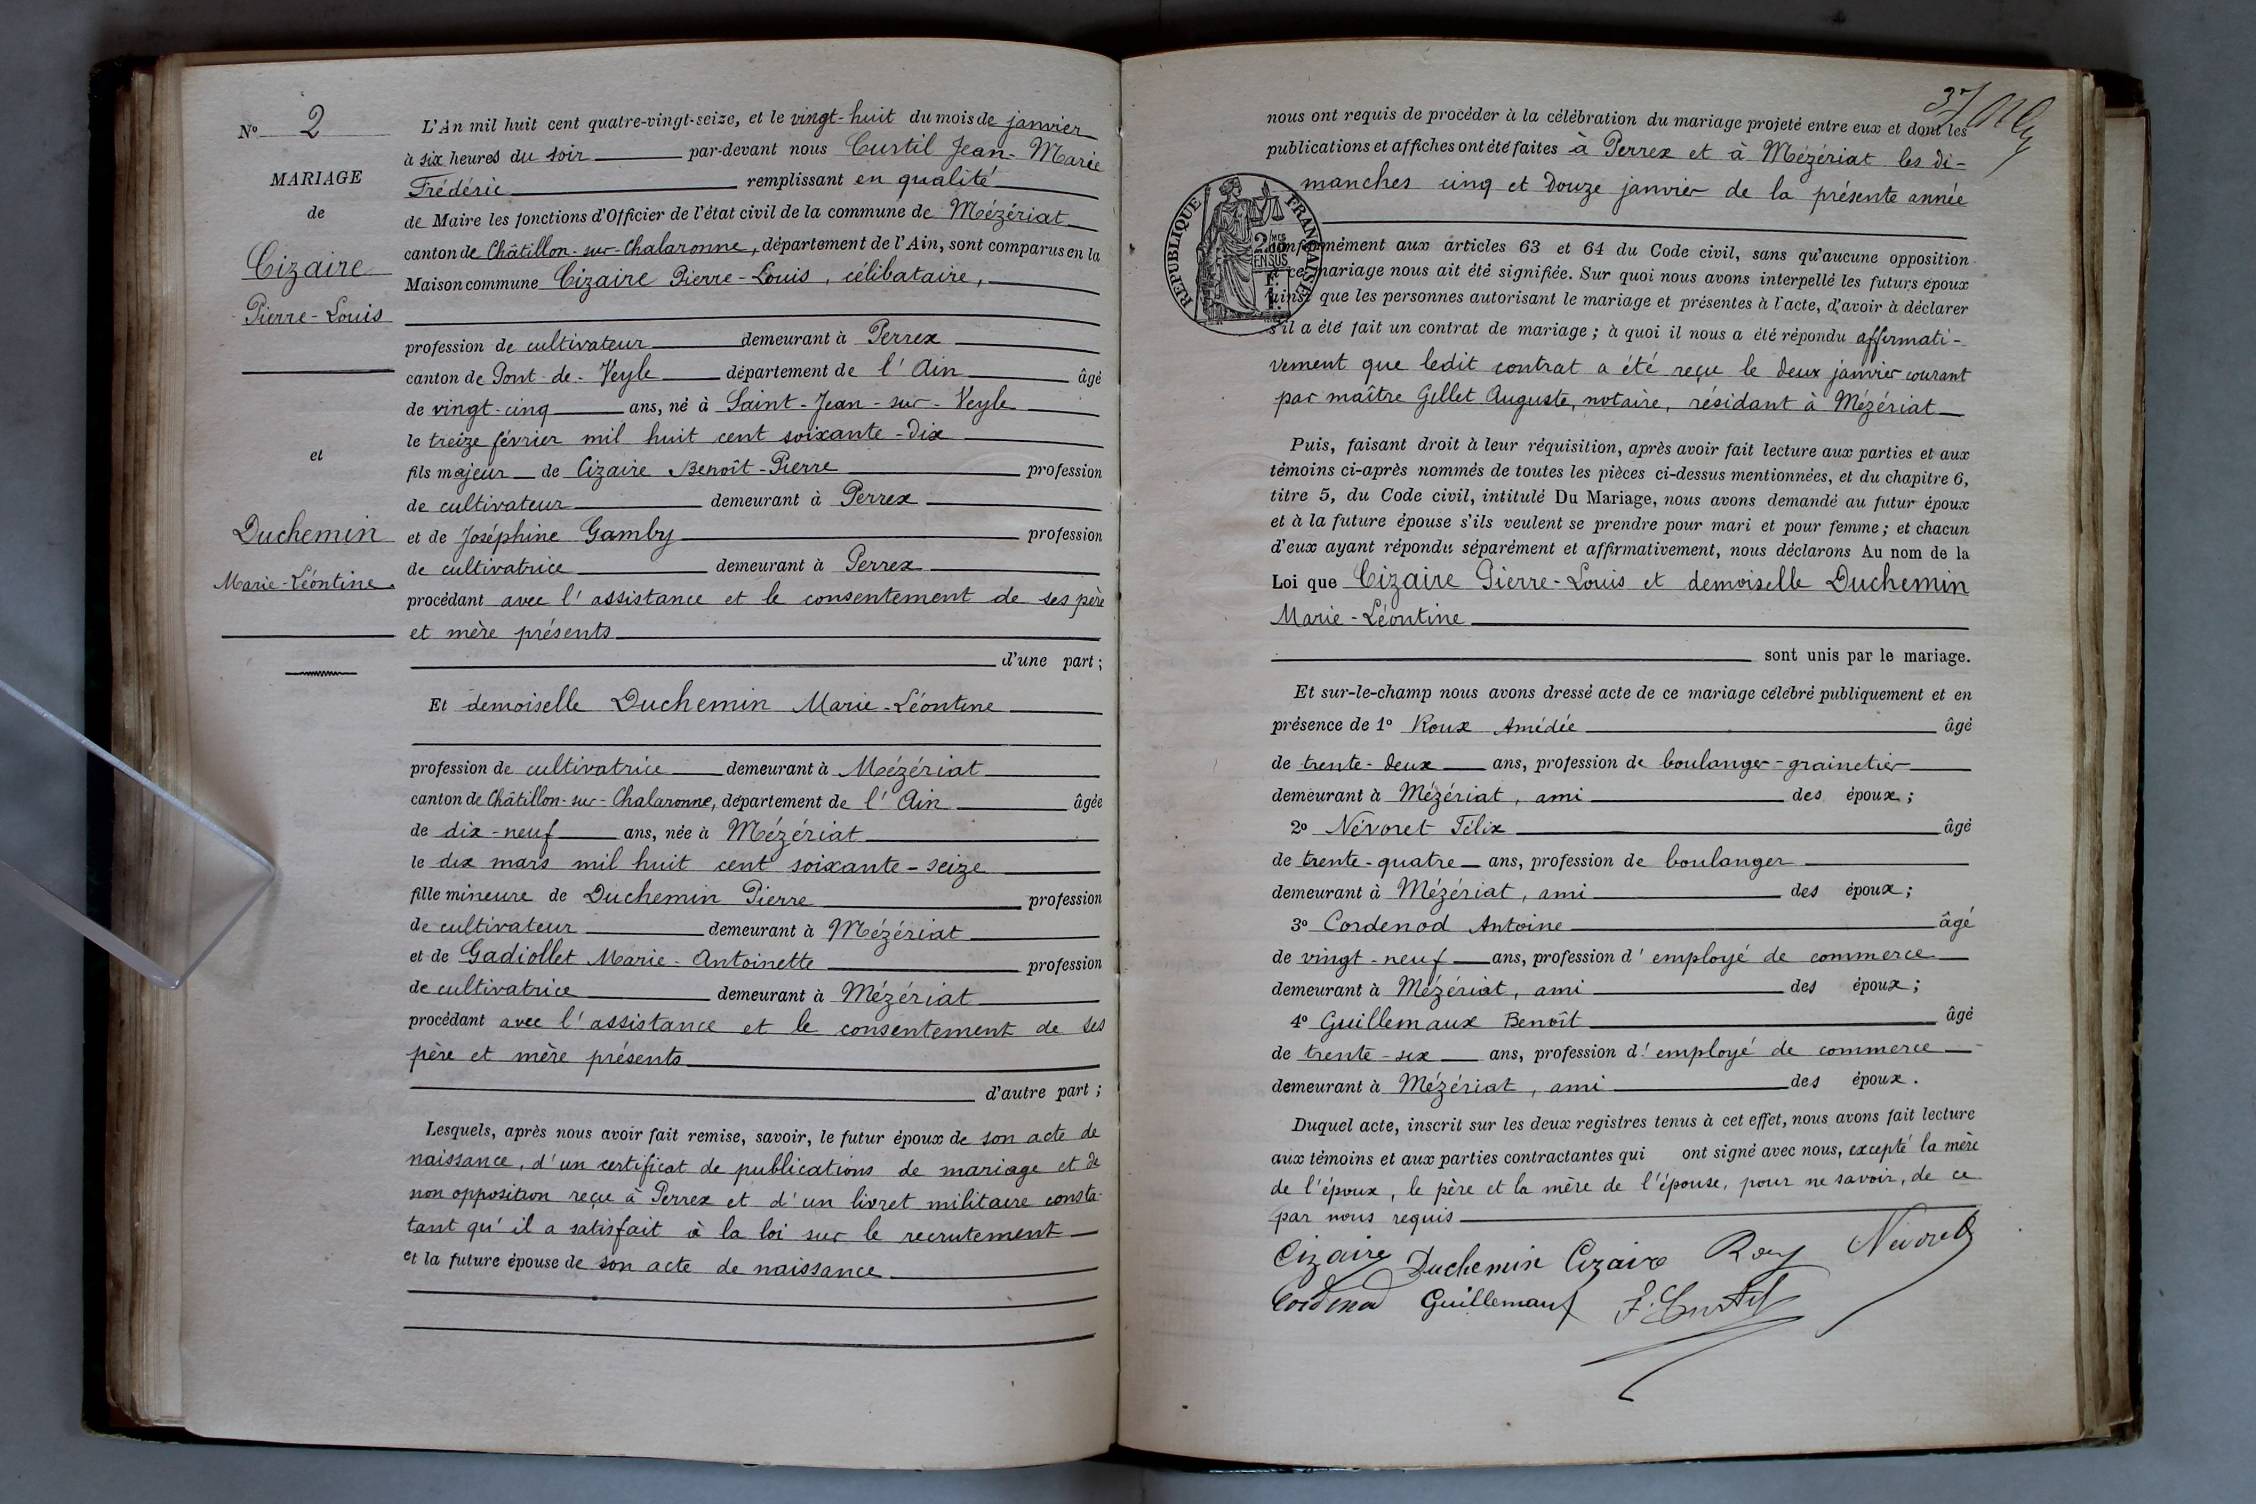 N° 2
MARIAGE
de
Cizaire
Pierre-Louis
et
Duchemin
Marie-Léontine.
L'An mil huit cent quatre-vingt-seize, et le vingt-huit du mois de janvier
à six heures du soir par-devant nous Curtil Jean-Marie
Frédéric remplissant en qualité
de Maire les fonctions d'Officier de l'état civil de la commune de Mézériat
canton de Châtillon-sur-Chalaronne, département de l'Ain, sont comparus en la
Maison commune Cizaire Pierre-Louis, célibataire,
profession de cultivateur demeurant à Perrex
canton de Pont-de-Veyle département de l'Ain âgé
de vingt-cinq ans, né à Saint-Jean-sur-Veyle
le treize février mil huit cent soixante-dix
fils majeur de Cizaire Benoît-Pierre profession
de cultivateur demeurant à Perrex
et de Joséphine Gamby profession
de cultivatrice demeurant à Perrex
procédant avec l'assistance et le consentement de ses père
et mère présents
d'une part;
Et demoiselle Duchemin Marie-Léontine
profession de cultivatrice demeurant à Mézériat
canton de Châtillon-sur-Chalaronne, département de l'Ain âgée
de dix-neuf ans, née à Mézériat
le dix mars mil huit cent soixante-seize
fille mineure de Duchemin Pierre profession
de cultivateur demeurant à Mézériat
et de Gadiollet Marie-Antoinette profession
de cultivatrice demeurant à Mézériat
procédant avec l'assistance et le consentement de ses
père et mère présents
d'autre part;
Lesquels, après nous avoir fait remise, savoir, le futur époux de son acte de
naissance, d'un certificat de publications de mariage et de
non opposition reçu à Perrex et d'un livret militaire consta-
tant qu'il a satisfait à la loi sur le recrutement
et la future épouse de son acte de naissance
37
nous ont requis de procéder à la célébration du mariage projeté entre eux et dont les
publications et affiches ont été faites à Perrex et à Mézériat les di-
manches cinq et douze janvier de la présente année
RÉPUBLIQUE FRANÇAISE
2/10ES
EN SUS
conformément aux articles 63 et 64 du Code civil, sans qu'aucune opposition
à ce mariage nous ait été signifiée. Sur quoi nous avons interpellé les futurs époux
ainsi que les personnes autorisant le mariage et présentes à l'acte, d'avoir à déclarer
s'il a été fait un contrat de mariage; à quoi il nous a été répondu affirmati-
vement que ledit contrat a été reçu le deux janvier courant
par maître Gellet Auguste, notaire, résidant à Mézériat
Puis, faisant droit à leur réquisition, après avoir fait lecture aux parties et aux
témoins ci-après nommés de toutes les pièces ci-dessus mentionnées, et du chapitre 6,
titre 5, du Code civil, intitulé Du Mariage, nous avons demandé au futur époux
et à la future épouse s'ils veulent se prendre pour mari et pour femme; et chacun
d'eux ayant répondu séparément et affirmativement, nous déclarons Au nom de la
Loi que Cizaire Pierre-Louis et demoiselle Duchemin
Marie-Léontine
sont unis par le mariage.
Et sur-le-champ nous avons dressé acte de ce mariage célébré publiquement et en
présence de 1° Roux Amédée âgé
de trente-deux ans, profession de boulanger-grainetier
demeurant à Mézériat, ami des époux;
2° Névoret Félix âgé
de trente-quatre ans, profession de boulanger
demeurant à Mézériat, ami des époux;
3° Cordenod Antoine âgé
de vingt-neuf ans, profession d'employé de commerce
demeurant à Mézériat, ami des époux;
4° Guillemaux Benoît âgé
de trente-six ans, profession d'employé de commerce
demeurant à Mézériat, ami des époux.
Duquel acte, inscrit sur les deux registres tenus à cet effet, nous avons fait lecture
aux témoins et aux parties contractantes qui ont signé avec nous, excepté la mère
de l'époux, le père et la mère de l'épouse, pour ne savoir, de ce
par nous requis
Cizaire Duchemin Cizaire Roux Névoret
Cordenod Guillemaux F. Curtil